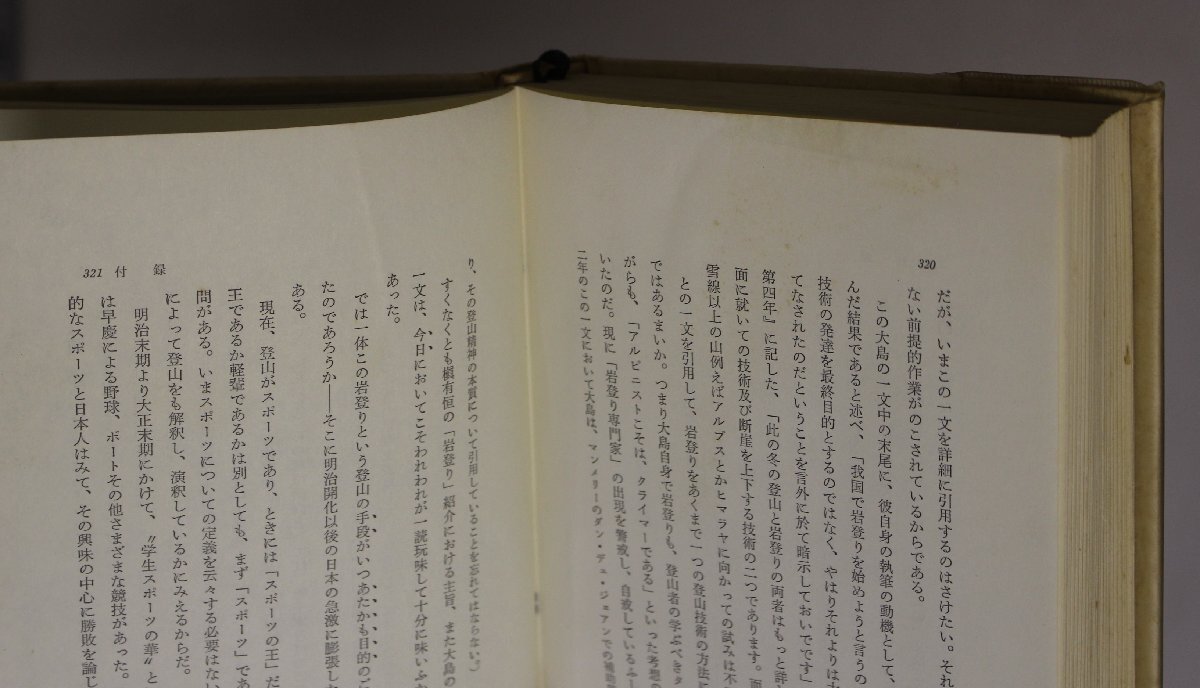 320
だが、いまこの一文を詳細に引用するのはさけたい。それ
ない前提的作業がのこされているからである。
この大島の一文中の末尾に、彼自身の執筆の動機として、
んだ結果であると述べ、「我国で岩登りを始めようと言うの
技術の発達を最終目的とするのではなく、やはりそれよりは
てなされたのだということを言外に於て暗示しておいでです」
第四年』に記した、「此の冬の登山と岩登りの両者はもっと詳
面に就いての技術及び断崖を上下する技術の二つであります。
雪線以上の山例えばアルプスとかヒマラヤに向かっての試みは不
との一文を引用して、岩登りをあくまで一つの登山技術の方法
ではあるまいか。つまり大島自身で岩登りも、登山者の学ぶべき
がらも、「アルピニストこそは、クライマーである」といった考想の
いたのだ。現に「岩登り専門家」の出現を警戒し、自戒しているふ
二年のこの一文において大島は、マンメリーのダン・デュ・ジェアンでの補助
り、その登山精神の本質について引用していることを忘れてはならない。)
すくなくとも槇有恒の「岩登り」紹介における主旨、また大島の
一文は、今日においてこそわれわれが一読玩味して十分に味いふ
あった。
では一体この岩登りという登山の手段がいつあたかも目的の
たのであろうか――そこに明治開化以後の日本の急激に膨張し
ある。
現在、登山がスポーツであり、ときには「スポーツの王」だ
王であるか軽輩であるかは別としても、まず「スポーツ」であ
間がある。いまスポーツについての定義を云々する必要はない
によって登山をも解釈し、演釈しているかにみえるからだ。
明治末期より大正末期にかけて、〝学生スポーツの華〟と
は早慶による野球、ボートその他さまざまな競技があった。
的なスポーツと日本人はみて、その興味の中心に勝敗を論じ
321 付 録